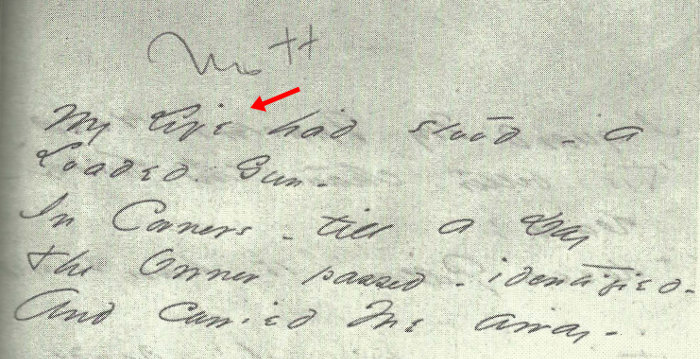 My Life had stood - a
Loaded Gun -
In Corners - till a Day
The Owner passed - identified -
And carried Me away -